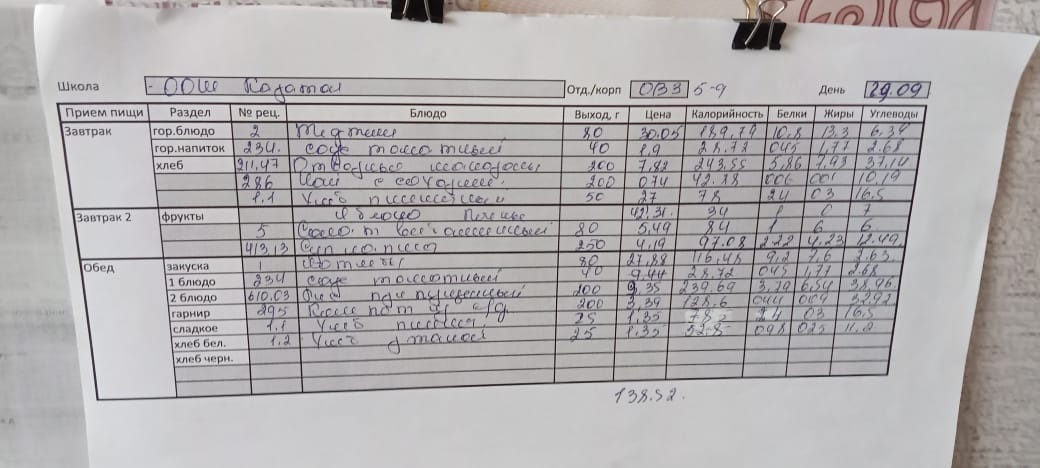 Школа ООШ Отд./корп ОВЗ 5-9 День 29.09
Прием пищи Раздел № рец. Блюдо Выход, г Цена Калорийность Белки Жиры Углеводы
Завтрак гор.блюдо 2 80 30.05 189,79 10,8 13.3 6.34
гор.напиток 234. соус томатный 40 1,9 28.72 045 1,77 2.68
хлеб 211,47 Отварные макароны 200 7,82 243.55 5,86 7,93 37,14
286 Чай с сахаром. 200 074 42.28 006 001 10,19
1.1 Хлеб пшеничный 50 27 78 24 03 16,5
Завтрак 2 фрукты Яблоко Печенье 42.31. 94 1 0 7
5 Салат 80 5,49 84 1 6 6
413,13 Суп 250 4,19 97.08 2.22 4.23 12.49
Обед закуска 1 Котлеты 80 27,88 116,48 9,2 7,6 2.63
1 блюдо 234 соус томатный 40 28.72 045 1,77 2.68
2 блюдо 610.03 Рис припущенный 200 9,35 239.69 3.79 6,54 38,96
гарнир 295 Компот 200 3.39 128.6 044 009 3292
сладкое 1.1 Хлеб 25 1.35 78 24 03 16,5
хлеб бел. 1.2 Хлеб ржаной 25 1.35 52.8 098 025 11.2
хлеб черн.
138.52.